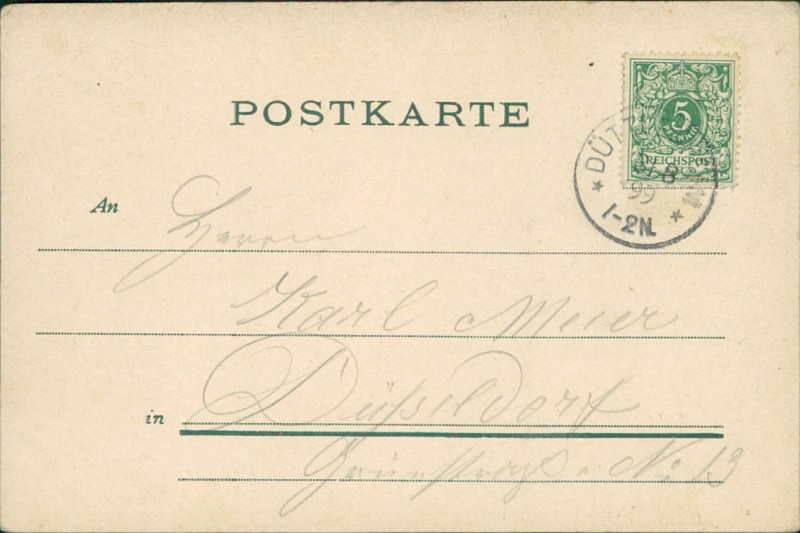 POSTKARTE
5
PFENNIG
REICHSPOST
8
99
1-2N.
An
Herrn
Karl Meier
in Düsseldorf
No 13